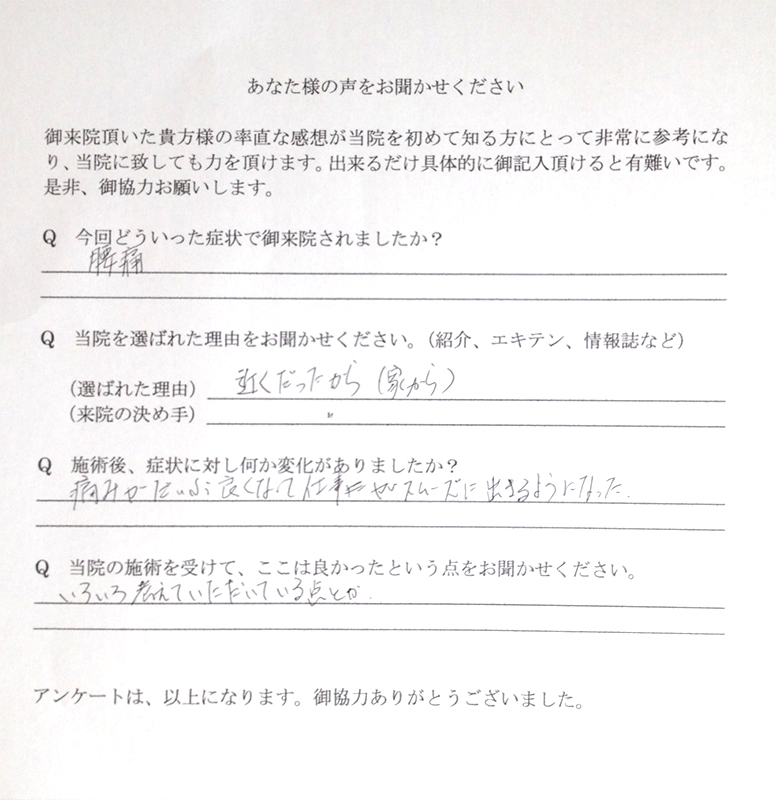 あなた様の声をお聞かせください
御来院頂いた貴方様の率直な感想が当院を初めて知る方にとって非常に参考にな
り、当院に致しても力を頂けます。出来るだけ具体的に御記入頂けると有難いです。
是非、御協力お願いします。
Q 今回どういった症状で御来院されましたか？
腰痛
Q 当院を選ばれた理由をお聞かせください。（紹介、エキテン、情報誌など）
（選ばれた理由） 近くだったから（家から）
（来院の決め手） 〃
Q 施術後、症状に対し何か変化がありましたか？
痛みがだいぶ良くなって仕事がスムーズに出きるようになった.
Q 当院の施術を受けて、ここは良かったという点をお聞かせください。
いろいろ考えていただいている点とか.
アンケートは、以上になります。御協力ありがとうございました。